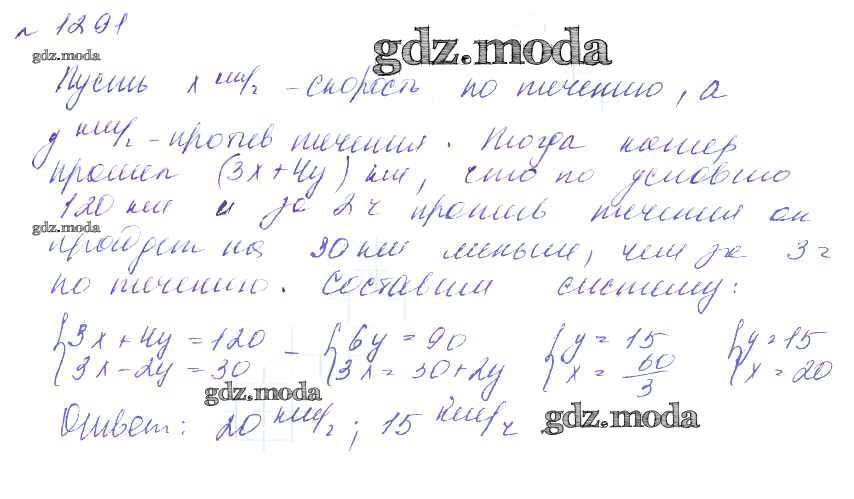 № 1291
gdz.moda
gdz.moda
Пусть x км/ч - скорость по течению, а
y км/ч - против течения. Тогда катер
прошел (3x+4y) км, что по условию
120 км и за 2 ч против течения он
gdz.moda
пройдет на 30 км меньше, чем за 3 ч
по течению. Составим систему:
{3x+4y=120 - {6y=90 {y=15 {y=15
{3x-2y=30 {3x=30+2y {x=60/3 {x=20
gdz.moda
Ответ: 20 км/ч; 15 км/ч.
gdz.moda